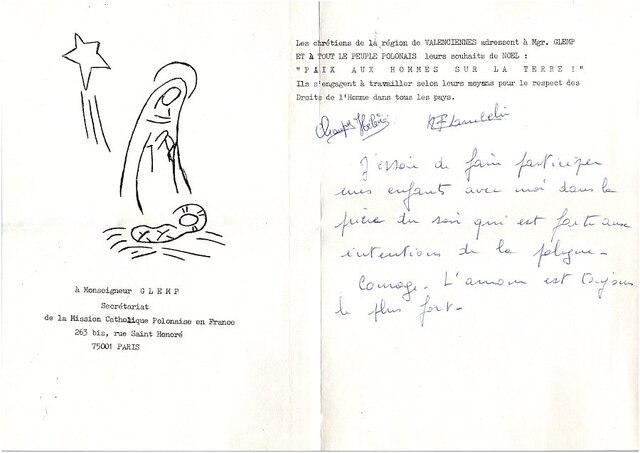 à Monseigneur GLEMP
Secrétariat
de la Mission Catholique Polonaise en France
263 bis, rue Saint Honoré
75001 PARIS
Les chrétiens de la région de VALENCIENNES adressent à Mgr. GLEMP
ET à TOUT LE PEUPLE POLONAIS leurs souhaits de NOEL :
"PAIX AUX HOMMES SUR LA TERRE !"
Ils s'engagent à travailler selon leurs moyens pour le respect des
Droits de l'Homme dans tous les pays.
J'essaie de faire participer
mes enfants avec moi dans la
prière du soir qui est faite aux
intentions de la pologne.
Courage. L'amour est toujours
le plus fort.